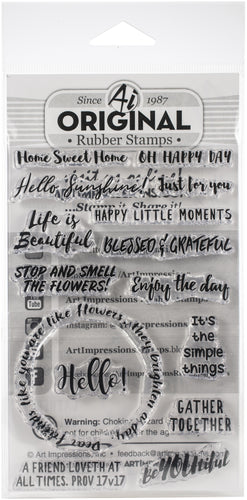 Since Ai 1987
ORIGINAL
Rubber Stamps
Home Sweet Home OH HAPPY DAY
Hello, Sunshine! Just for you
Life is Beautiful
HAPPY LITTLE MOMENTS
BLESSED & GRATEFUL
STOP AND SMELL THE FLOWERS!
Enjoy the day
You
Tube
Dear Friends like you are like flowers they brighten a day
It's
the
simple
things
Hello!
Warning: Choking
not for children under
GATHER
TOGETHER
© Art Impressions, Inc • feedback@artimpressions
A FRIEND LOVETH AT
ALL TIMES. PROV 17v17
Be YOUtiful